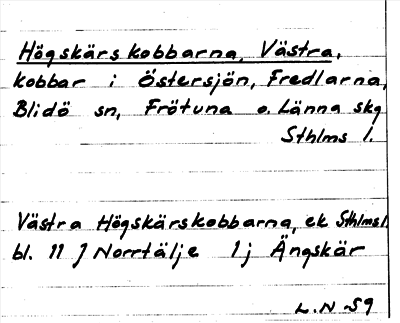 Högskärskobbarna, Västra,
kobbar i Östersjön, Fredlarna,
Blidö sn, Frötuna o. Länna skg
Sthlms l.
Västra Högskärskobbarna, ek Sthlms l.
bl. 11 J Norrtälje 1j Ängskär
L.N 59